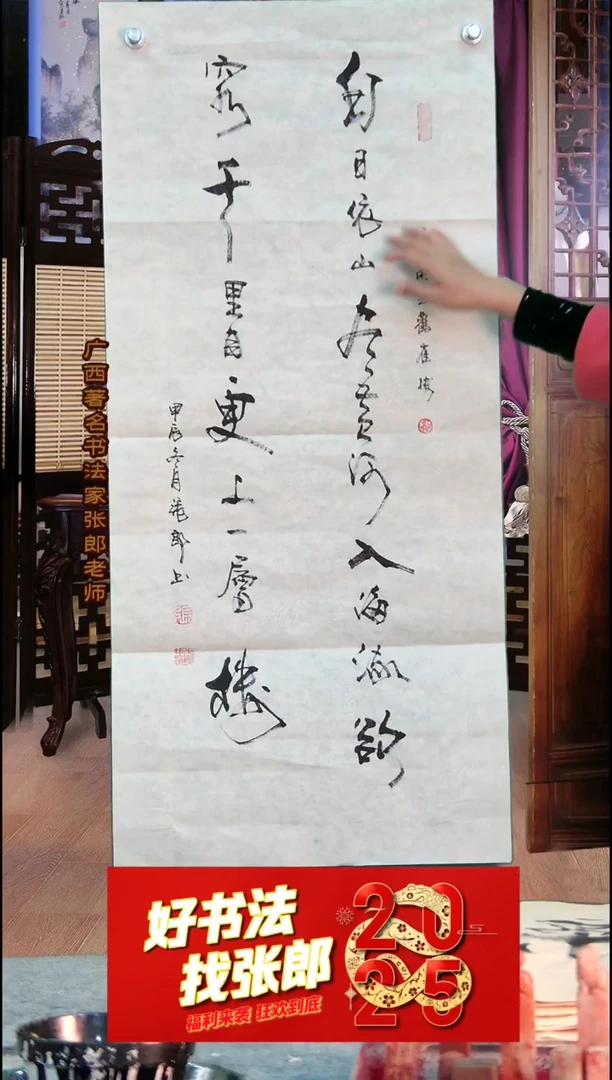 鸛雀樓
日依山尽黄河入海流欲
窮千里目更上一層樓
甲辰冬月張郎书
广西著名书法家张郎老师
好书法
找张郎
福利来袭 狂欢到底
2025